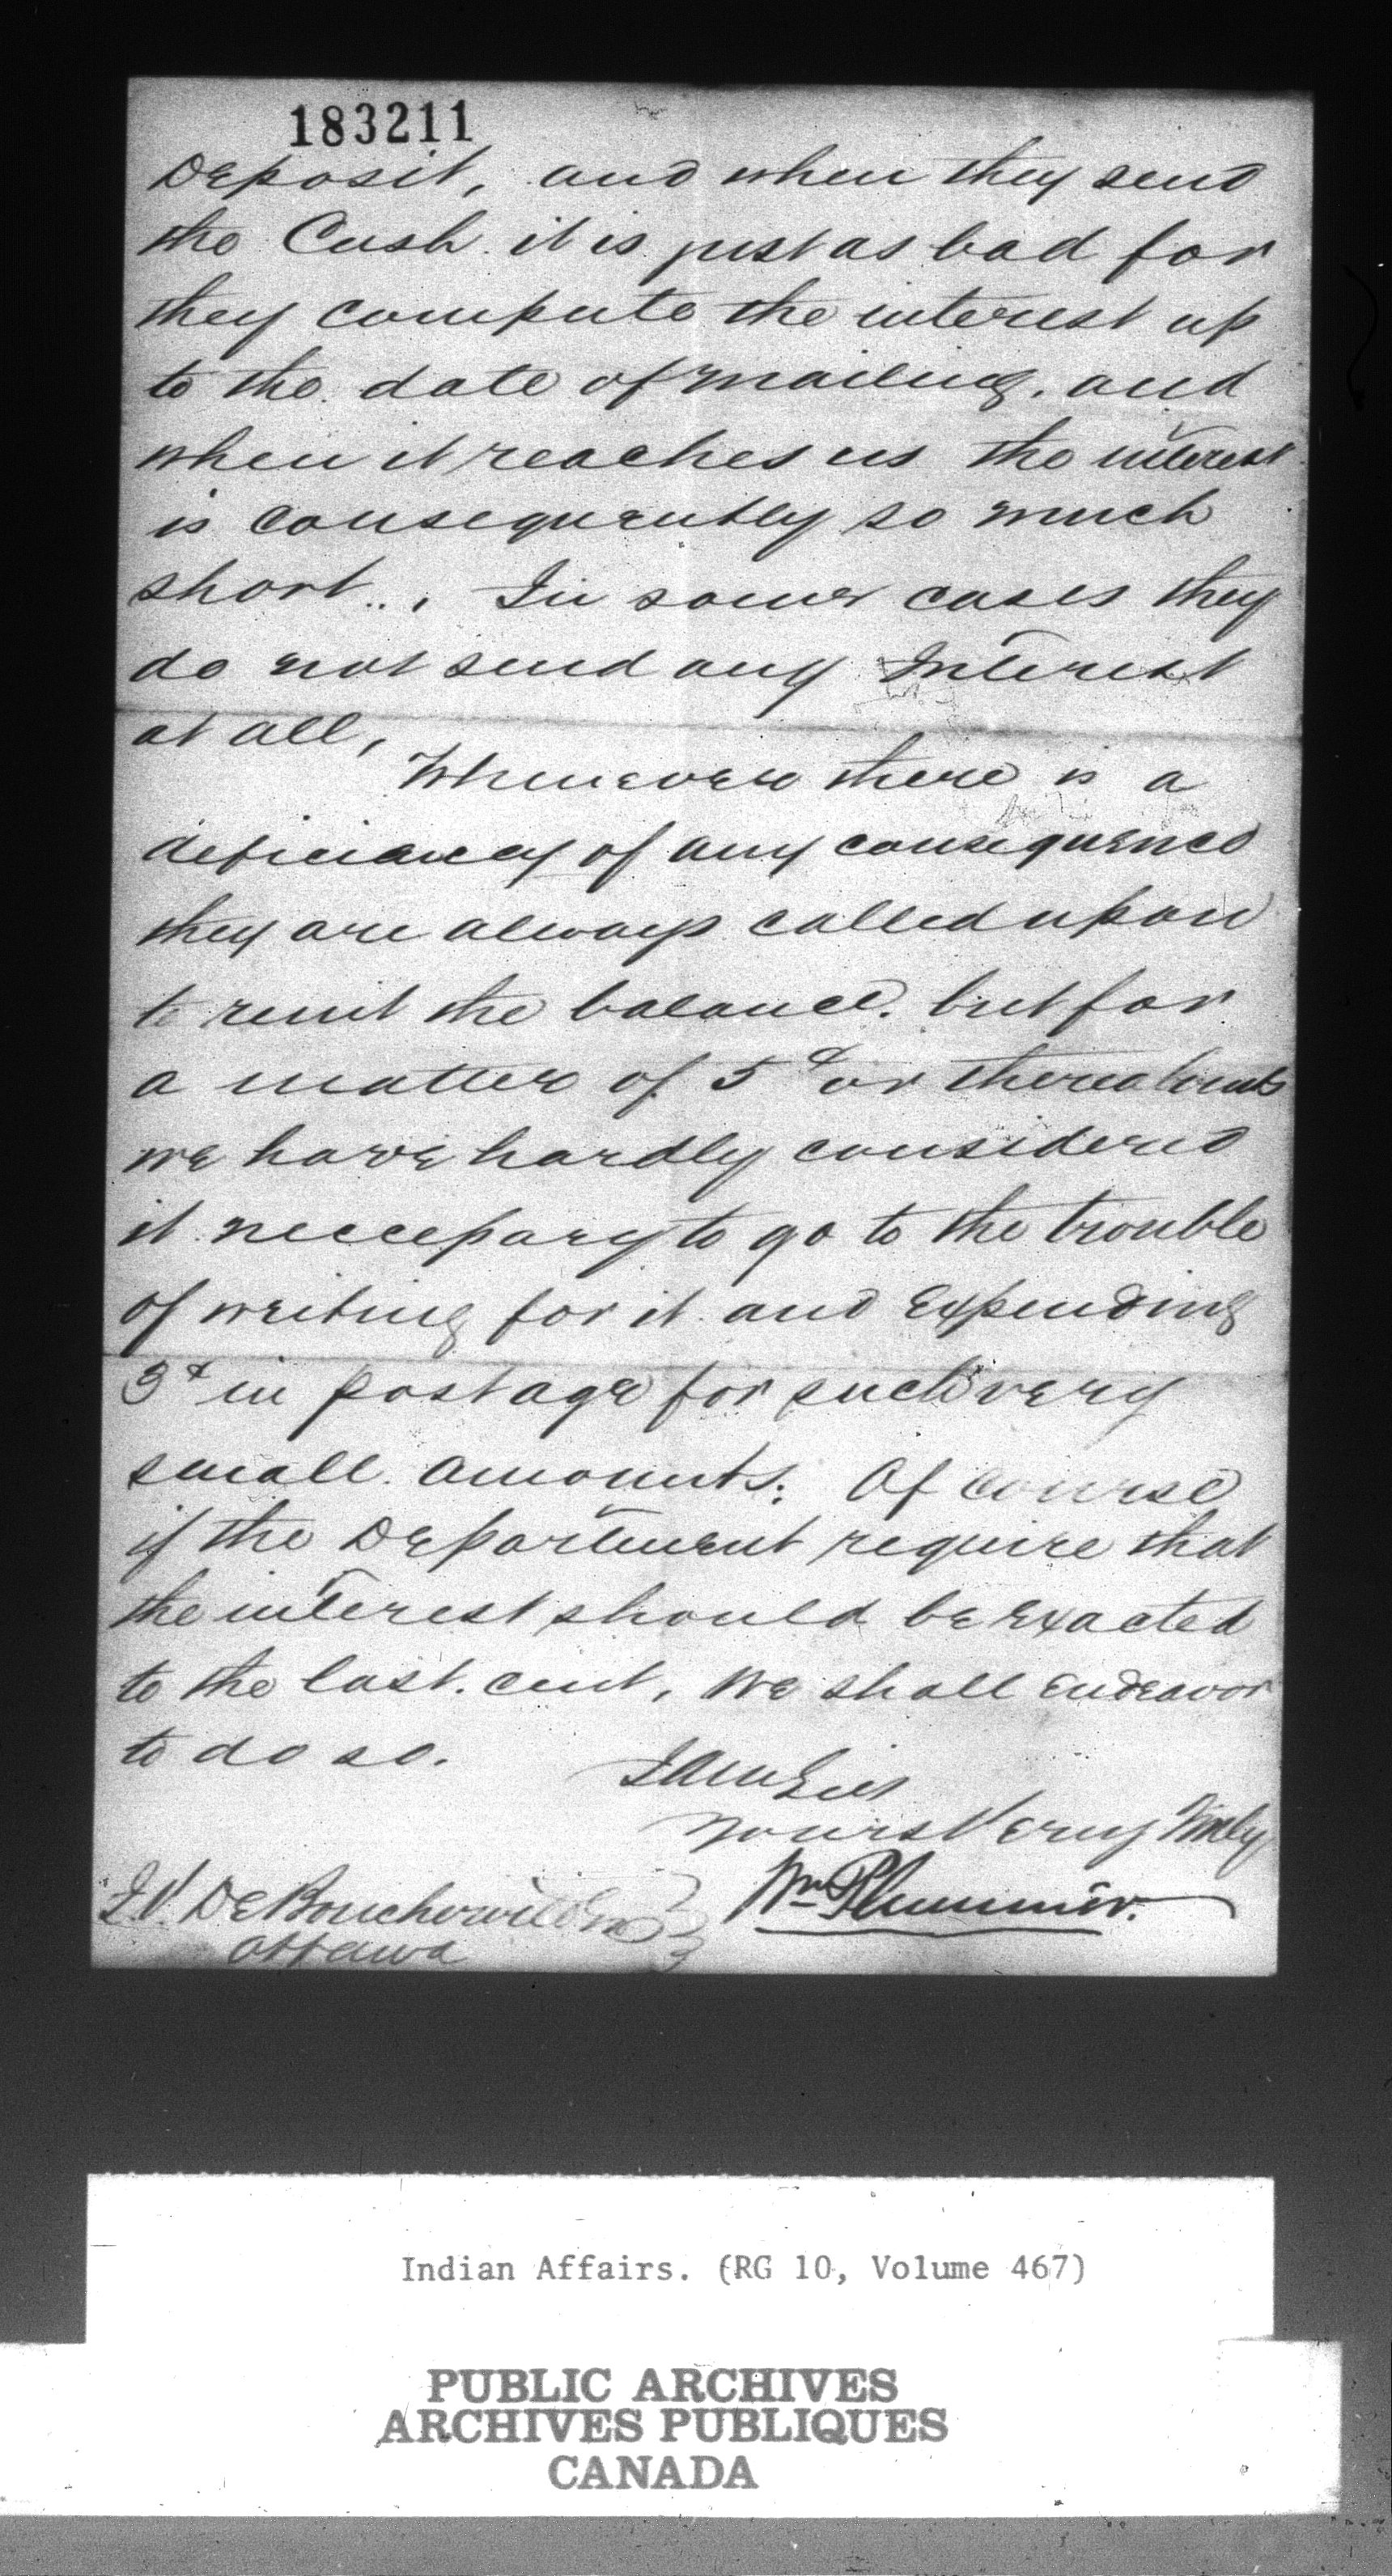 183211
Deposit, and when they send
the Cash it is just as bad for
they compute the interest up
to the date of mailing, and
when it reaches us the interest
is consequently so much
short... In some cases they
do not send any Interest
at all,
Whenever there is a
deficiency of any consequence
they are always called upon
to remit the balance. but for
a matter of 5¢ or thereabouts
we have hardly considered
it neccessary to go to the trouble
of writing for it and expending
3¢ in postage for such very
small amounts. Of course
if the Department require that
the interest should be exacted
to the last cent, we shall endeavor
to do so.
I am Sir
Yours Very Truly
Wm Plummer.
J.V. De Boucherville Esq
Ottawa
Indian Affairs. (RG 10, Volume 467)
PUBLIC ARCHIVES
ARCHIVES PUBLIQUES
CANADA